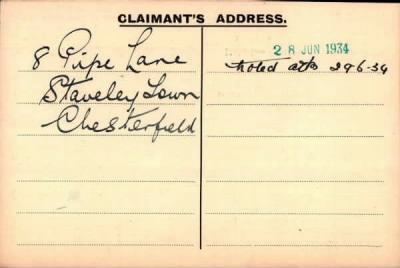 CLAIMANT'S ADDRESS.
8 Pipe Lane
Staveley Town
Chesterfield
28 JUN 1934
Noted 29 6-34